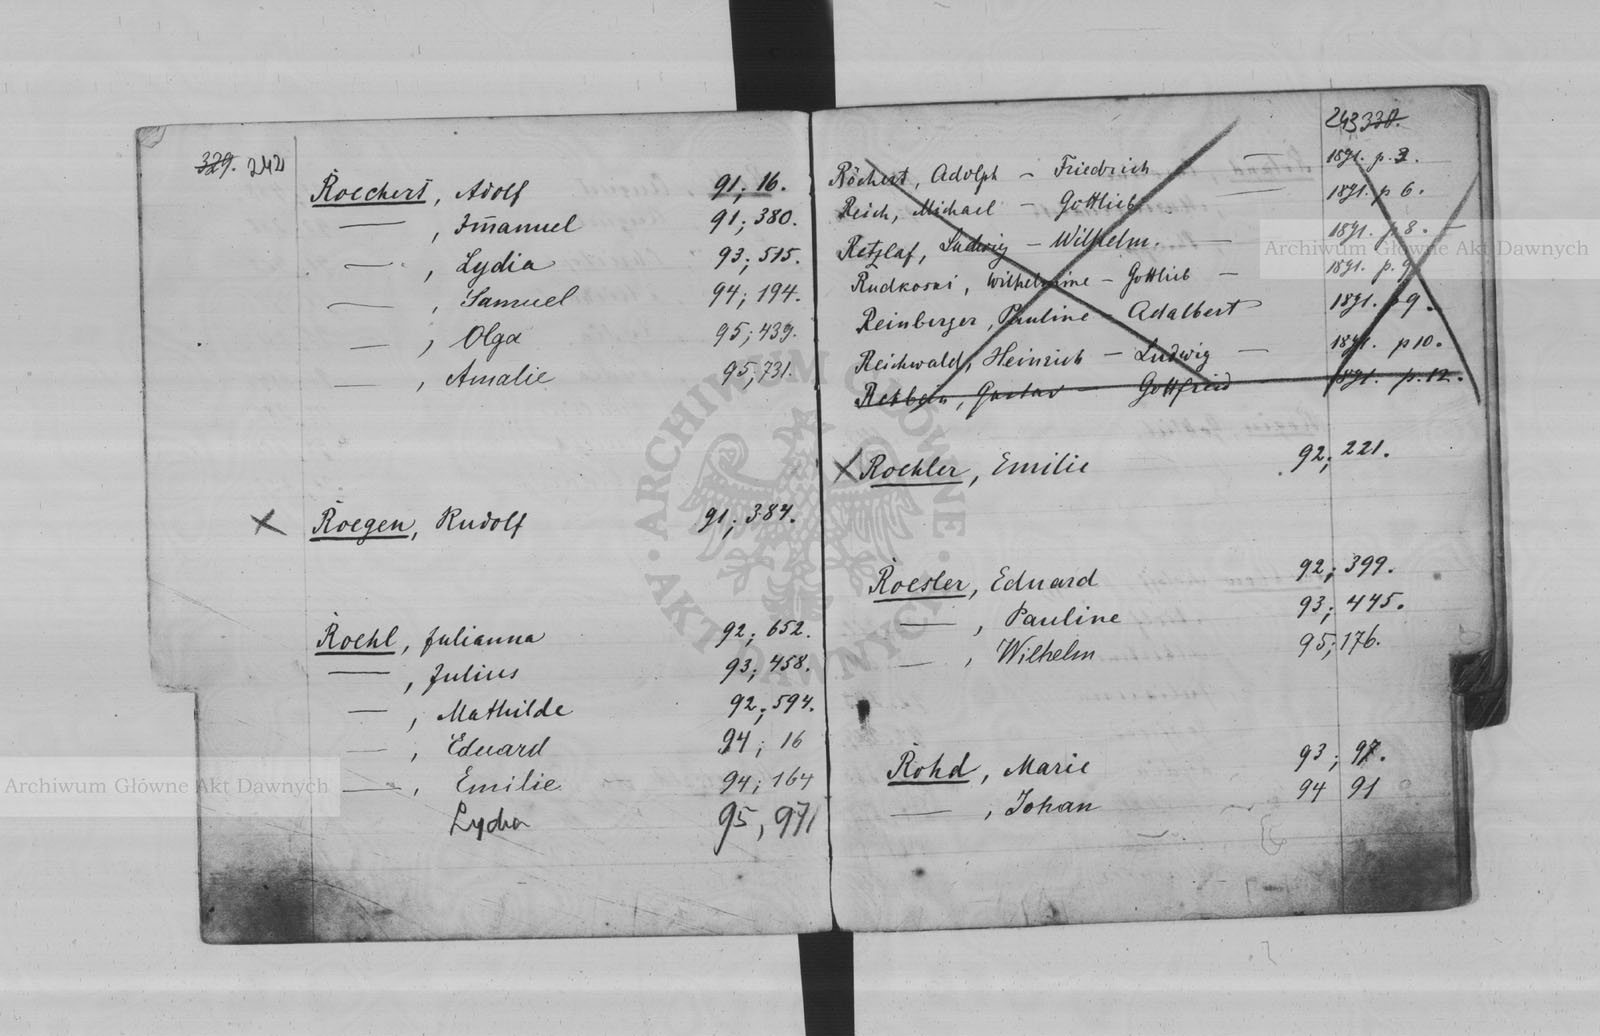 329. 242
Roechert, Adolf 91; 16.
— , Im̄anuel 91; 380.
— , Lydia 93; 515.
— , Samuel 94; 194.
— , Olga 95; 439.
— , Amalie 95; 731.
Roegen, Rudolf 91; 384.
Roehl, Julianna 92; 652.
— , Julius 93; 458.
— , Mathilde 92; 594.
— , Eduard 94; 16
— , Emilie 94; 164
Lydia 95, 971
243 330.
Röchert, Adolph - Friedrich — 1891. p. 3.
Reich, Michael - Gottlieb — 1891. p 6.
Retzlaf, Ludwig - Wilhelm. — 1891. p 8.
Rudkoski, Wilhelmine - Gottlieb — 1891. p. 9
Reinberger, Pauline - Adalbert 1891. p 9.
Reichwald, Heinrich - Ludwig — 1891. p 10.
Rehbein, Gustav - Gottfried 1891. p. 12.
Roehler, Emilie 92; 221.
Roesler, Eduard 92; 399.
— , Pauline 93; 445.
— , Wilhelm 95; 176.
Rohd, Marie 93; 97.
— , Johan 94 91
Archiwum Główne Akt Dawnych
Archiwum Główne Akt Dawnych
ARCHIWUM GŁÓWNE · AKT DAWNYCH ·